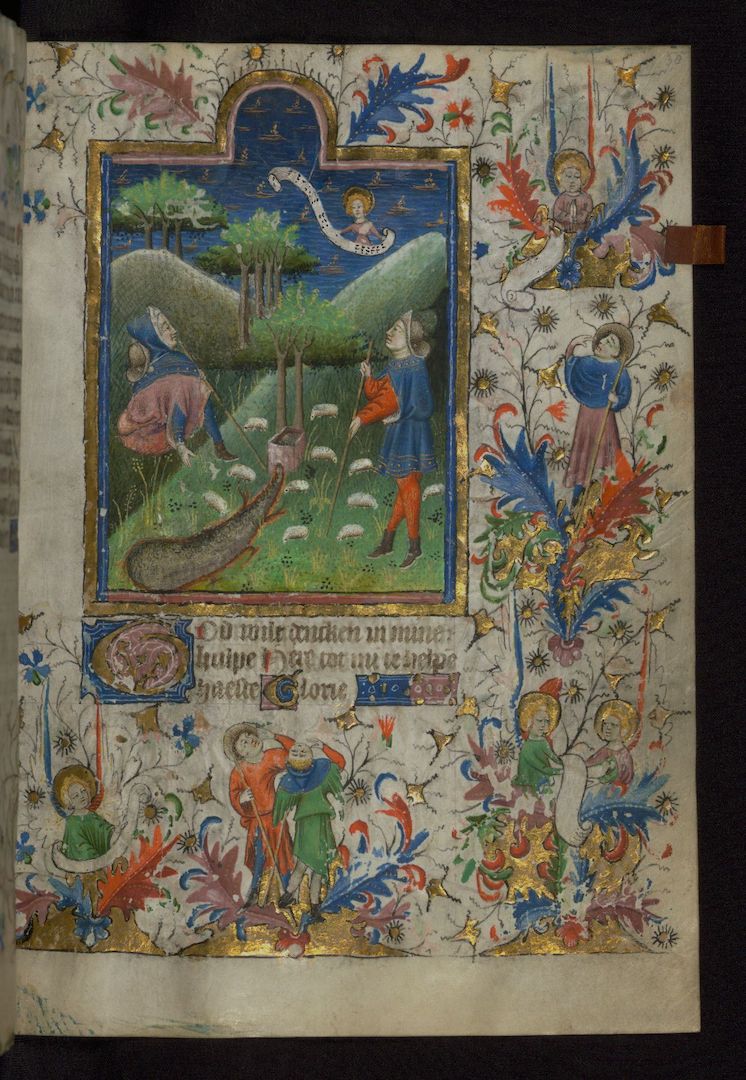 God wilt dencken in mine
hulpe Here tot mi te helpe
haeste Glorie